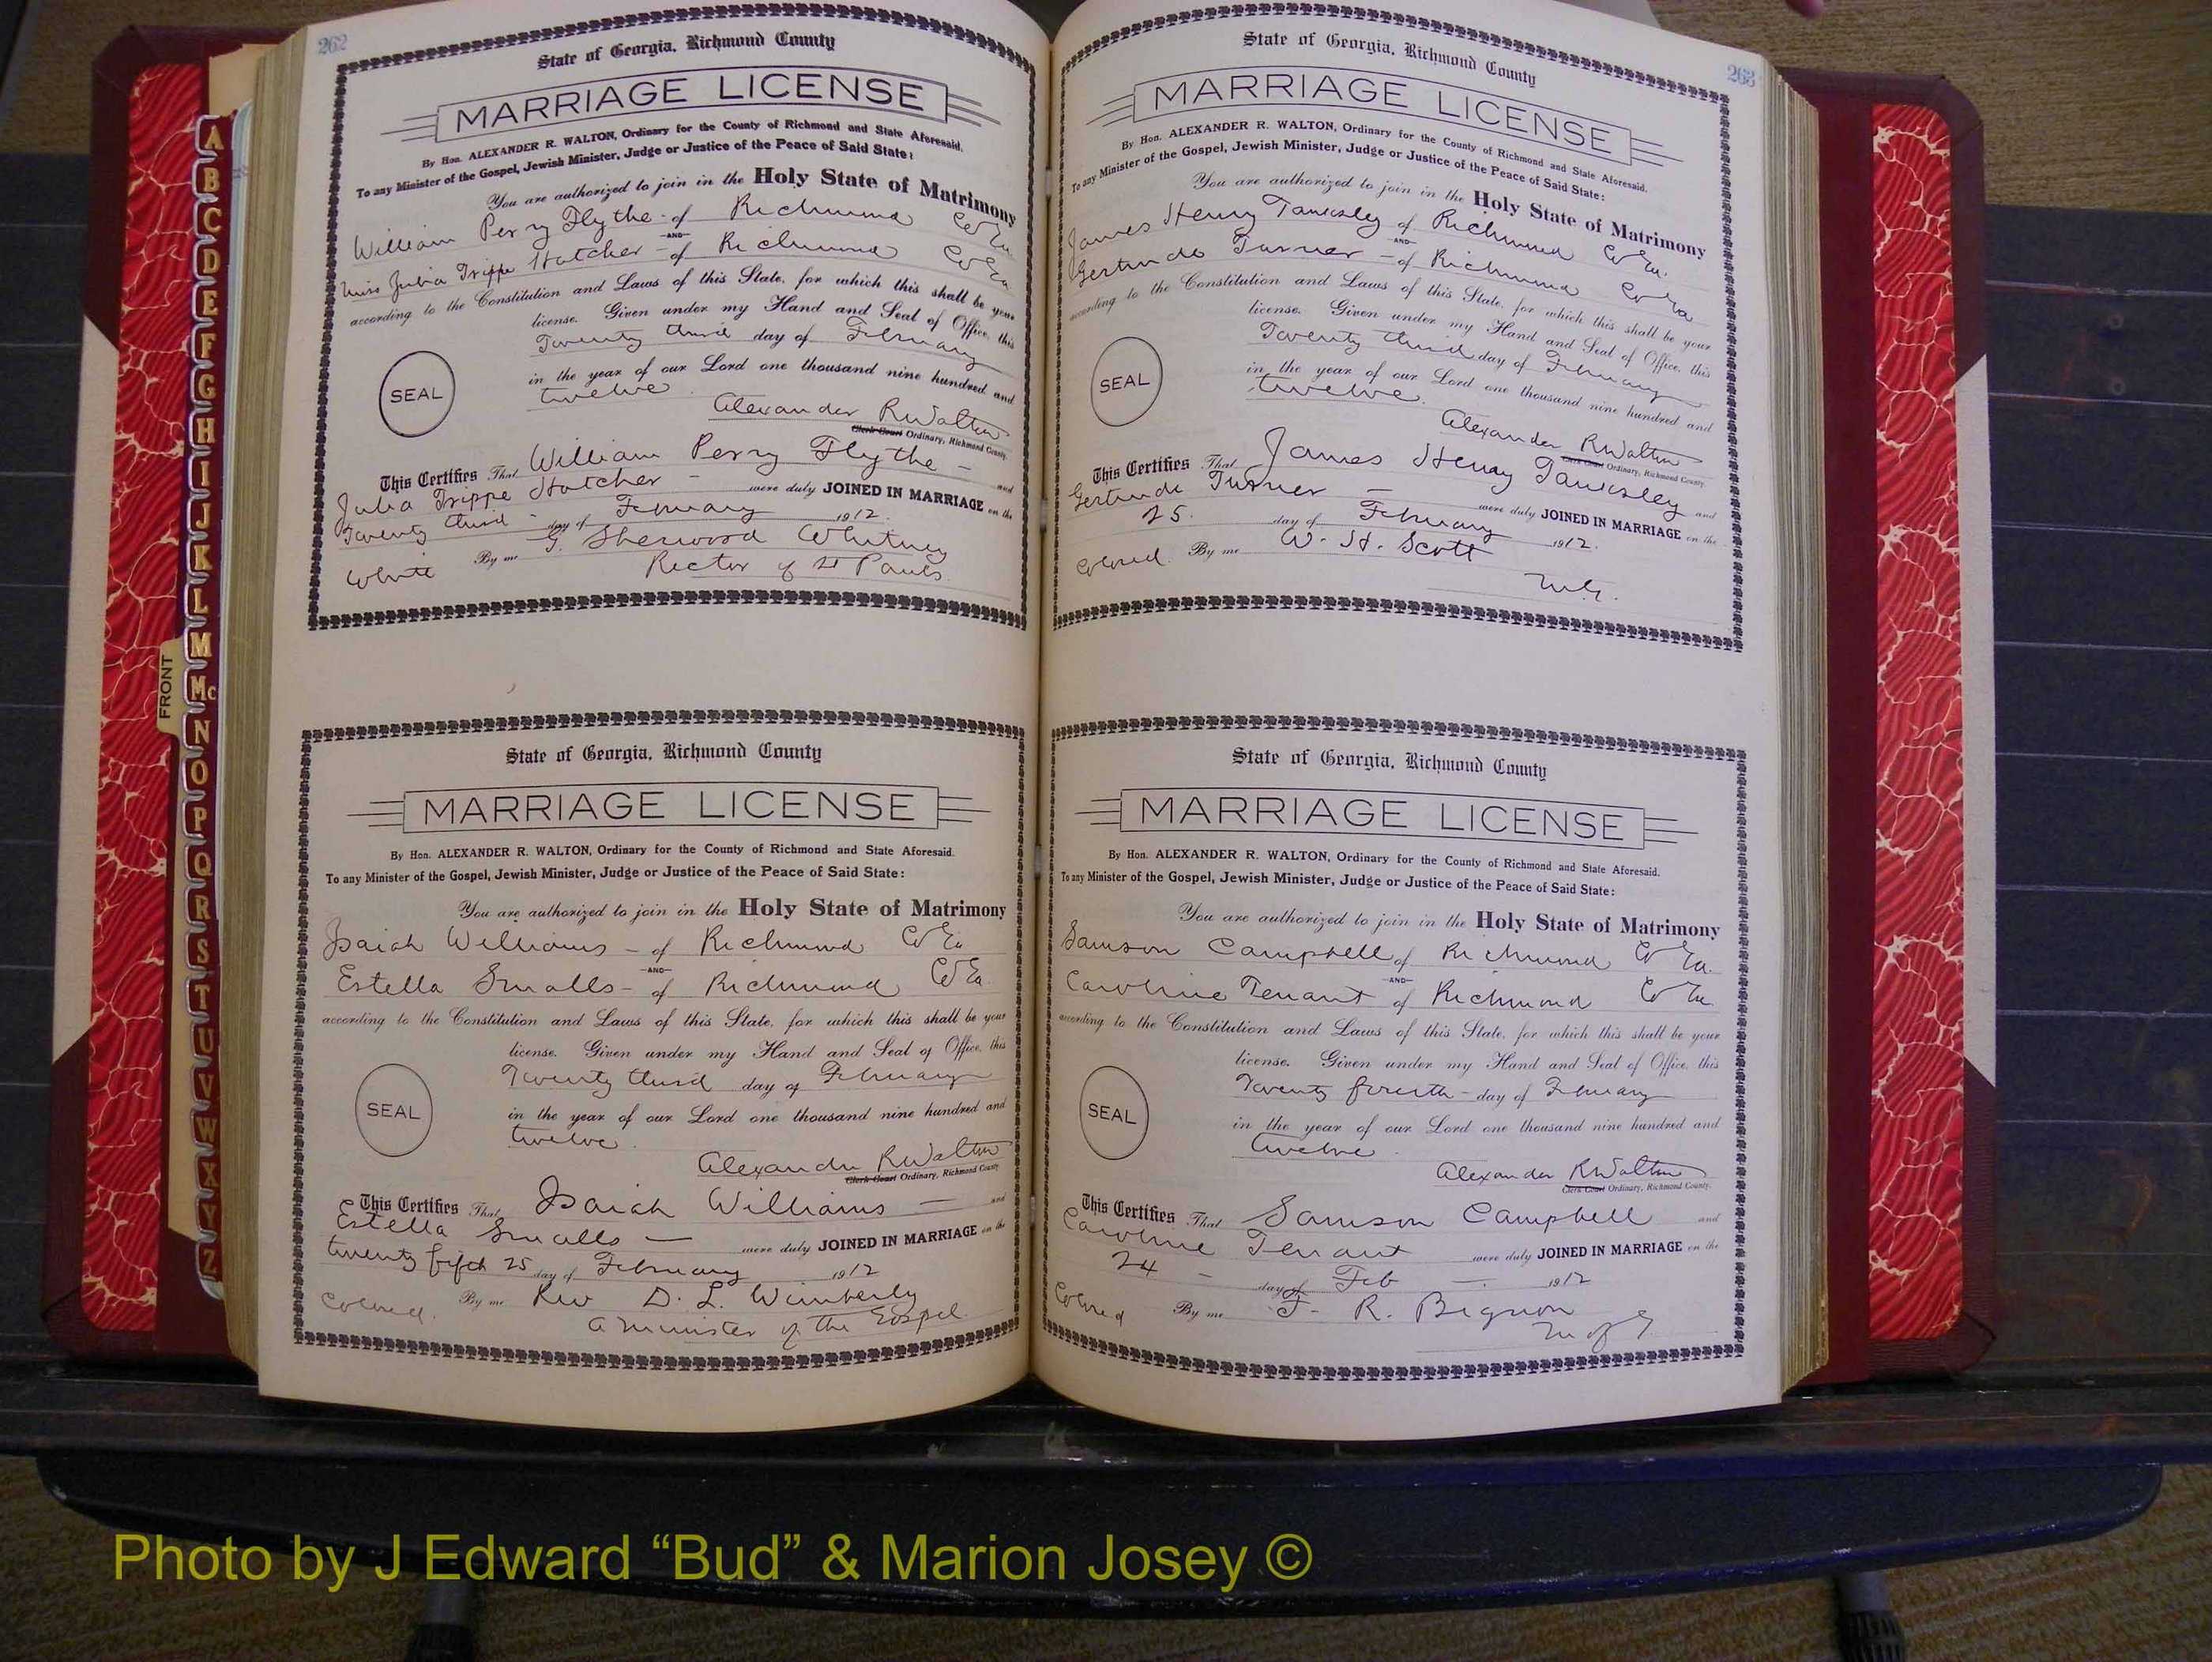 262
State of Georgia, Richmond County
MARRIAGE LICENSE
By Hon. ALEXANDER R. WALTON, Ordinary for the County of Richmond and State Aforesaid.
To any Minister of the Gospel, Jewish Minister, Judge or Justice of the Peace of Said State:
You are authorized to join in the Holy State of Matrimony
William Perry Flythe - of Richmond Co Ga
-AND-
Miss Julia Trippe Hatcher - of Richmond Co Ga
according to the Constitution and Laws of this State, for which this shall be your
license. Given under my Hand and Seal of Office, this
Twenty third day of February
SEAL
in the year of our Lord one thousand nine hundred and
twelve
Alexander R Walton
Clerk Court Ordinary, Richmond County.
This Certifies That William Perry Flythe - and
Julia Trippe Hatcher - were duly JOINED IN MARRIAGE on the
Twenty third - day of February 1912.
By me G. Sherwood Whitney
White Rector of St Pauls
State of Georgia, Richmond County
MARRIAGE LICENSE
By Hon. ALEXANDER R. WALTON, Ordinary for the County of Richmond and State Aforesaid.
To any Minister of the Gospel, Jewish Minister, Judge or Justice of the Peace of Said State:
You are authorized to join in the Holy State of Matrimony
Isaiah Williams - of Richmond Co Ga
-AND-
Estella Smalls - of Richmond Co Ga
according to the Constitution and Laws of this State, for which this shall be your
license. Given under my Hand and Seal of Office, this
Twenty third day of February
SEAL
in the year of our Lord one thousand nine hundred and
twelve
Alexander R Walton
Clerk Court Ordinary, Richmond County
This Certifies That Isaiah Williams - and
Estella Smalls - were duly JOINED IN MARRIAGE on the
twenty fifth 25 day of February 1912
By me Rev D. L. Wimberly
Colored. a minister of the Gospel.
263
State of Georgia, Richmond County
MARRIAGE LICENSE
By Hon. ALEXANDER R. WALTON, Ordinary for the County of Richmond and State Aforesaid.
To any Minister of the Gospel, Jewish Minister, Judge or Justice of the Peace of Said State:
You are authorized to join in the Holy State of Matrimony
James Henry Tanksley of Richmond Co Ga.
-AND-
Gertrude Turner - of Richmond Co Ga
according to the Constitution and Laws of this State, for which this shall be your
license. Given under my Hand and Seal of Office, this
Twenty third day of February
SEAL
in the year of our Lord one thousand nine hundred and
twelve.
Alexander R Walton
Clerk Court Ordinary, Richmond County.
This Certifies That James Henry Tanksley and
Gertrude Turner - were duly JOINED IN MARRIAGE on the
25. day of February 1912.
Colored. By me W. H. Scott
M.G.
State of Georgia, Richmond County
MARRIAGE LICENSE
By Hon. ALEXANDER R. WALTON, Ordinary for the County of Richmond and State Aforesaid.
To any Minister of the Gospel, Jewish Minister, Judge or Justice of the Peace of Said State:
You are authorized to join in the Holy State of Matrimony
Samson Campbell of Richmond Co Ga.
-AND-
Caroline Tenant of Richmond Co Ga
according to the Constitution and Laws of this State, for which this shall be your
license. Given under my Hand and Seal of Office, this
Twenty fourth - day of February
SEAL
in the year of our Lord one thousand nine hundred and
twelve
Alexander R Walton
Clerk Court Ordinary, Richmond County.
This Certifies That Samson Campbell and
Caroline Tenant were duly JOINED IN MARRIAGE on the
24 - day of Feb - 1912
Colored By me J. R. Bignon
M of G
FRONT
A
B
C
D
E
F
G
H
I
J
K
L
M
Mc
N
O
P
Q
R
S
T
U
V
W
X
Y
Z
Photo by J Edward “Bud” & Marion Josey ©